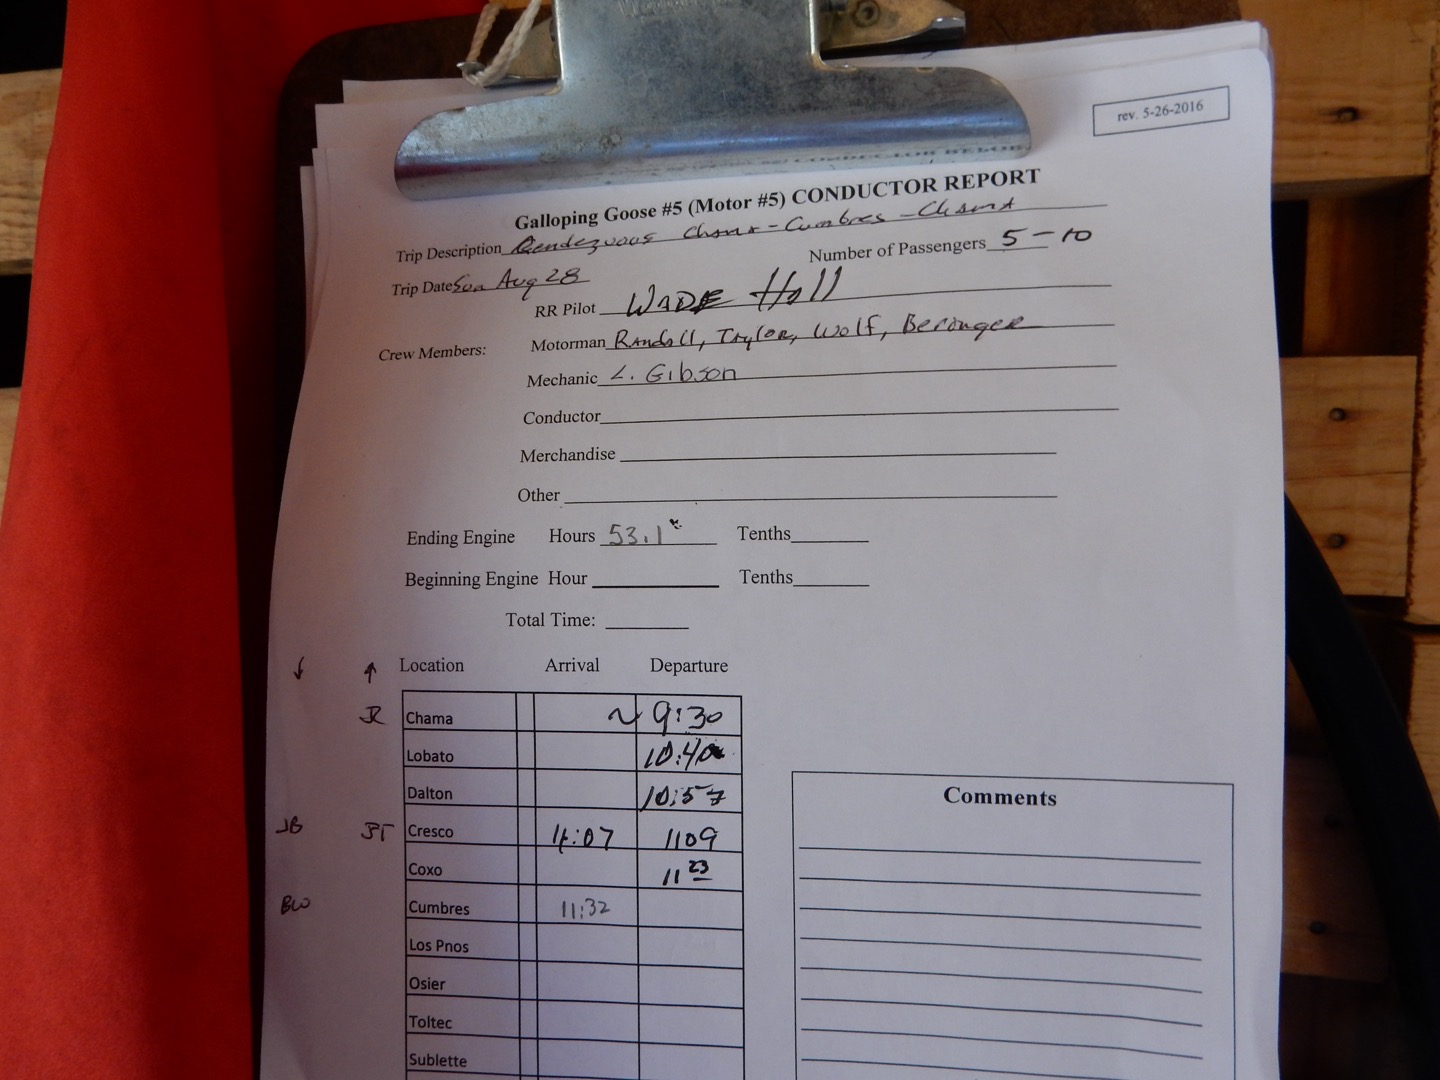 rev. 5-26-2016
Galloping Goose #5 (Motor #5) CONDUCTOR REPORT
Trip Description Rendezvous Chama - Cumbres - Chama
Number of Passengers 5-10
Trip Date Sun Aug 28
RR Pilot WADE Hall
Crew Members: Motorman Randall, Taylor, Wolf, Beranger
Mechanic L. Gibson
Conductor
Merchandise
Other
Ending Engine Hours 53.1 Tenths
Beginning Engine Hour Tenths
Total Time:
↓ ↑ Location Arrival Departure
JR Chama ~ 9:30
Lobato 10:40
Dalton 10:57
JB JT Cresco 11:07 1109
Coxo 11 23
BW Cumbres 11:32
Los Pnos
Osier
Toltec
Sublette
Comments